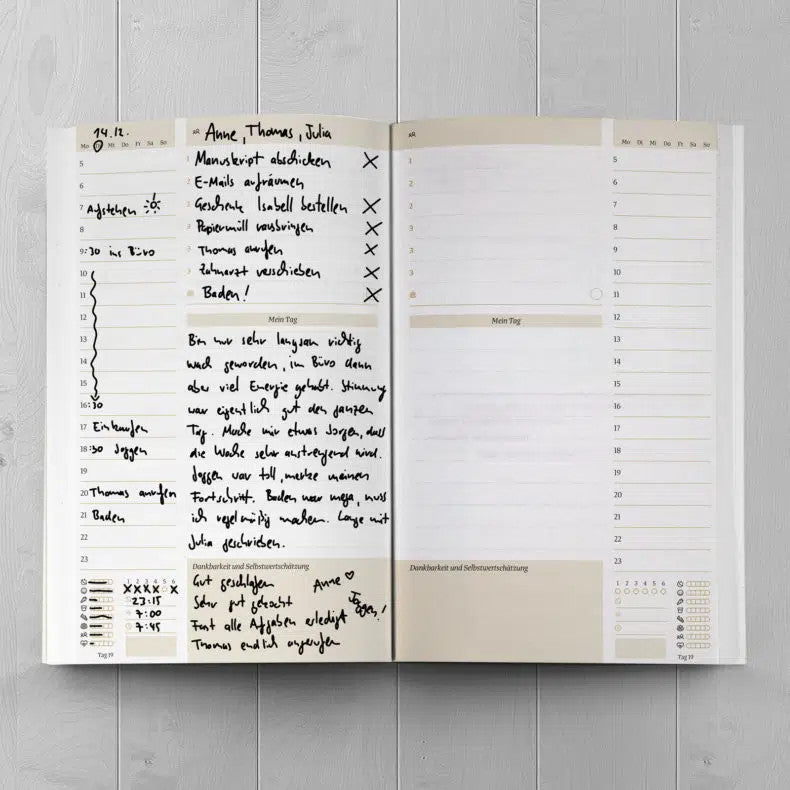 14.12.
Mo D Mi Do Fr Sa So
5
6
7 Aufstehen
8
9:30 ins Büro
10
11
12
13
14
15
16:30
17 Einkaufen
18:30 Joggen
19
20 Thomas anrufen
21 Baden
22
23
1 2 3 4 5 6
X X X X X
23:15
7:00
7:45
Tag 19
Anne, Thomas, Julia
1 Manuskript abschicken X
2 E-Mails aufräumen
2 Geschenke Isabell bestellen X
3 Papiermüll rausbringen X
3 Thomas anrufen X
3 Zahnarzt verschieben X
Baden! X
Mein Tag
Bin nur sehr langsam richtig
wach geworden, im Büro dann
aber viel Energie gehabt. Stimmung
war eigentlich gut den ganzen
Tag. Mache mir etwas Sorgen, dass
die Woche sehr anstrengend wird.
Joggen war toll, merke meinen
Fortschritt. Baden war mega, muss
ich regelmäßig machen. Lange mit
Julia geschrieben.
Dankbarkeit und Selbstwertschätzung
Gut geschlafen Anne ♡
Sehr gut gekocht Joggen!
Fast alle Aufgaben erledigt
Thomas endlich angerufen
1
2
2
3
3
3
Mein Tag
Dankbarkeit und Selbstwertschätzung
Mo Di Mi Do Fr Sa So
5
6
7
8
9
10
11
12
13
14
15
16
17
18
19
20
21
22
23
1 2 3 4 5 6
Tag 19